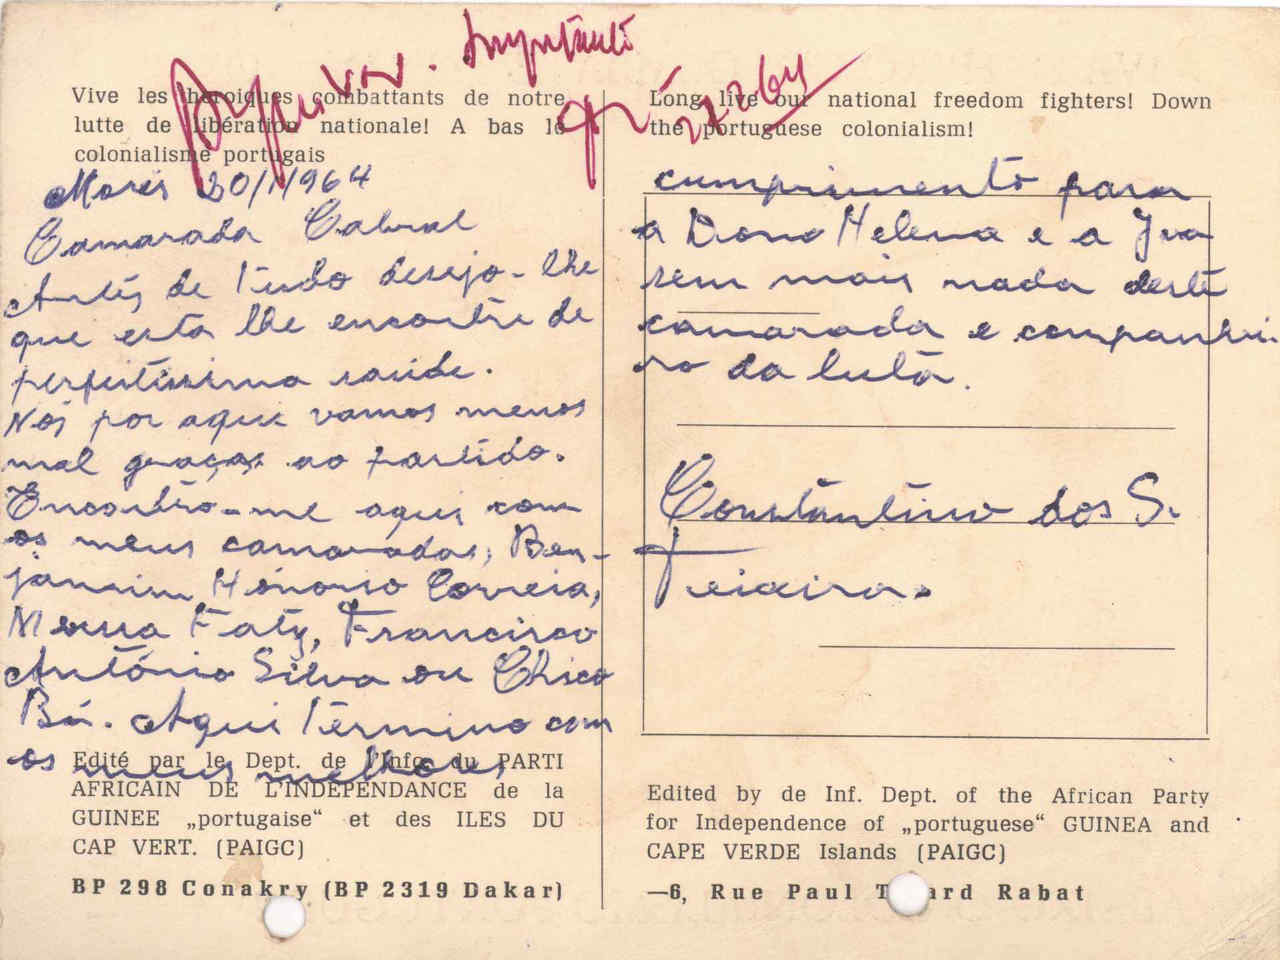 Vive les heroiques combattants de notre
lutte de libération nationale! A bas le
colonialisme portugais
Morés 20/1/1964
Camarada Cabral
Antes de tudo desejo-lhe
que esta lhe encontre de
perfeitissima saúde.
Nós por aqui vamos menos
mal graças ao partido.
Encontro-me aqui com
os meus camaradas, Ben-
jamim Honorio Correia,
Mussa Faty, Francisco
António Silva ou Chico
Bá. Aqui termino com
os meus melhores
Edité par le Dept. de l'Info. du PARTI
AFRICAIN DE L'INDEPENDANCE de la
GUINEE „portugaise“ et des ILES DU
CAP VERT. (PAIGC)
BP 298 Conakry (BP 2319 Dakar)
Importante
27264
Long live our national freedom fighters! Down
the portuguese colonialism!
cumprimento para
a Dona Helena e a Iva
sem mais nada deste
camarada e companhei-
ro da luta.
Constantino dos S.
Teixeira.
Edited by de Inf. Dept. of the African Party
for Independence of „portuguese“ GUINEA and
CAPE VERDE Islands (PAIGC)
—6, Rue Paul Rabat